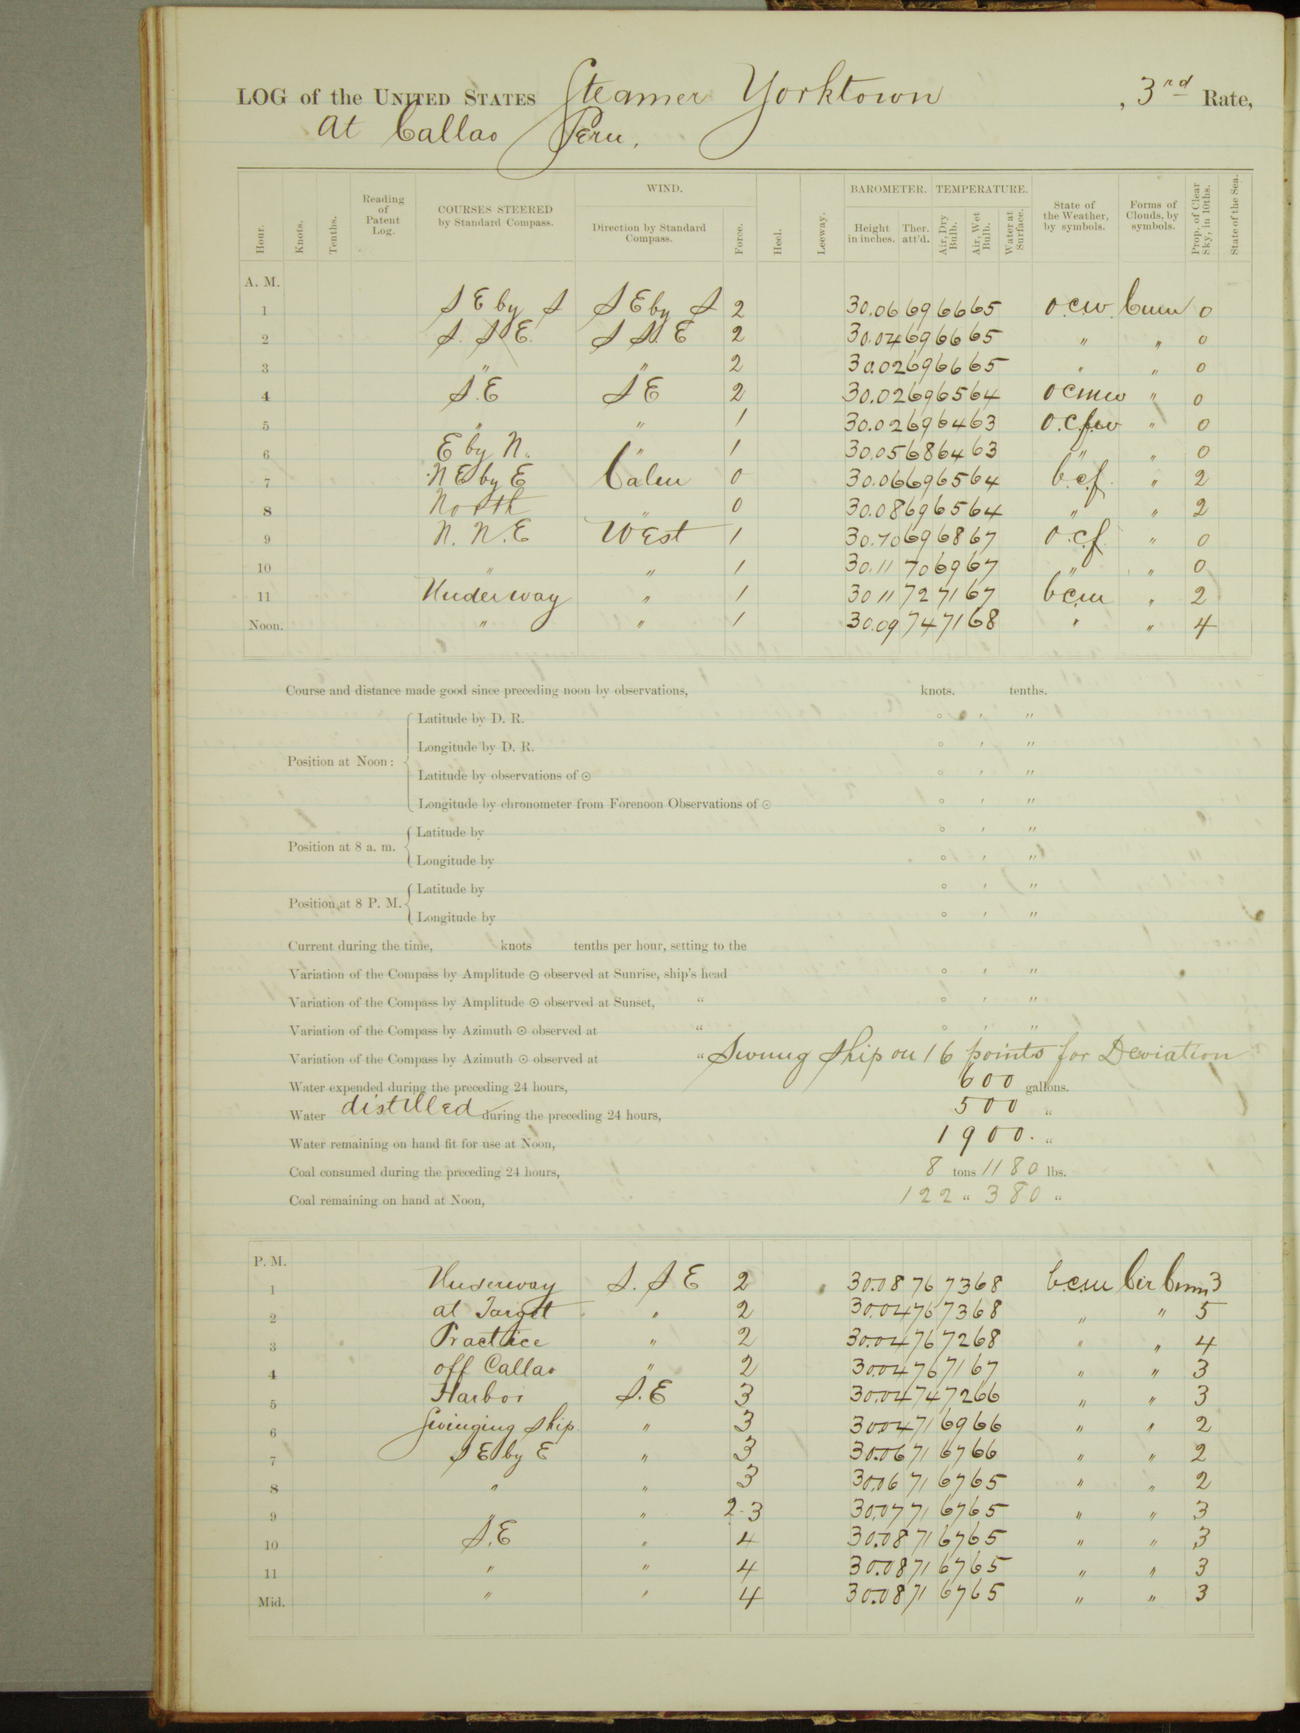 LOG of the UNITED STATES Steamer Yorktown , 3rd Rate,
At Callao Peru.
Hour. Knots. Tenths. Reading of Patent Log. COURSES STEERED by Standard Compass. WIND. Direction by Standard Compass. Force. Heel. Leeway. BAROMETER. Height in inches. Ther. att'd. TEMPERATURE. Air, Dry Bulb. Air, Wet Bulb. Water at Surface. State of the Weather, by symbols. Forms of Clouds, by symbols. Prop. of Clear Sky, in 10ths. State of the Sea.
A. M.
1 S E by S S E by S 2 30.06 69 66 65 o.c.w. Cum 0
2 S. S E. S S. E 2 30.04 69 66 65 " " 0
3 " " 2 30.02 69 66 65 " " 0
4 S.E S E 2 30.02 69 65 64 o c m w " 0
5 " " 1 30.02 69 64 63 o.c.f.w " 0
6 E by N. " 1 30.05 68 64 63 " " 0
7 N E by E Calm 0 30.06 69 65 64 b.c.f. " 2
8 North " 0 30.08 69 65 64 " " 2
9 N. N. E West 1 30.70 69 68 67 o.c.f " 0
10 " " 1 30.11 70 69 67 " " 0
11 Underway " 1 30 11 72 71 67 b c.m " 2
Noon. " " 1 30.09 74 71 68 " " 4
Course and distance made good since preceding noon by observations, knots. tenths.
Position at Noon: Latitude by D. R. ° ' "
Longitude by D. R. ° ' "
Latitude by observations of ☉ ° ' "
Longitude by chronometer from Forenoon Observations of ☉ ° ' "
Position at 8 a. m. Latitude by ° ' "
Longitude by ° ' "
Position at 8 P. M. Latitude by ° ' "
Longitude by ° ' "
Current during the time, knots tenths per hour, setting to the
Variation of the Compass by Amplitude ☉ observed at Sunrise, ship's head ° ' "
Variation of the Compass by Amplitude ☉ observed at Sunset, " ° ' "
Variation of the Compass by Azimuth ☉ observed at " ° ' "
Variation of the Compass by Azimuth ☉ observed at " Swung Ship on 16 points for Deviation
Water expended during the preceding 24 hours, 600 gallons.
Water distilled during the preceding 24 hours, 500 "
Water remaining on hand fit for use at Noon, 1900. "
Coal consumed during the preceding 24 hours, 8 tons 1180 lbs.
Coal remaining on hand at Noon, 122 " 380 "
P. M.
1 Underway S. S E 2 30.08 76 73 68 b.c.m Cir Cum 3
2 at Target " 2 30.04 76 73 68 " " 5
3 Practice " 2 30.04 76 72 68 " " 4
4 off Callao " 2 30.04 76 71 67 " " 3
5 Harbor S.E 3 30.04 74 72 66 " " 3
6 Swinging Ship " 3 30.04 71 69 66 " " 2
7 S E by E " 3 30.06 71 67 66 " " 2
8 " " 3 30.06 71 67 65 " " 2
9 " " 2-3 30.07 71 67 65 " " 3
10 S.E " 4 30.08 71 67 65 " " 3
11 " " 4 30.08 71 67 65 " " 3
Mid. " " 4 30.08 71 67 65 " " 3